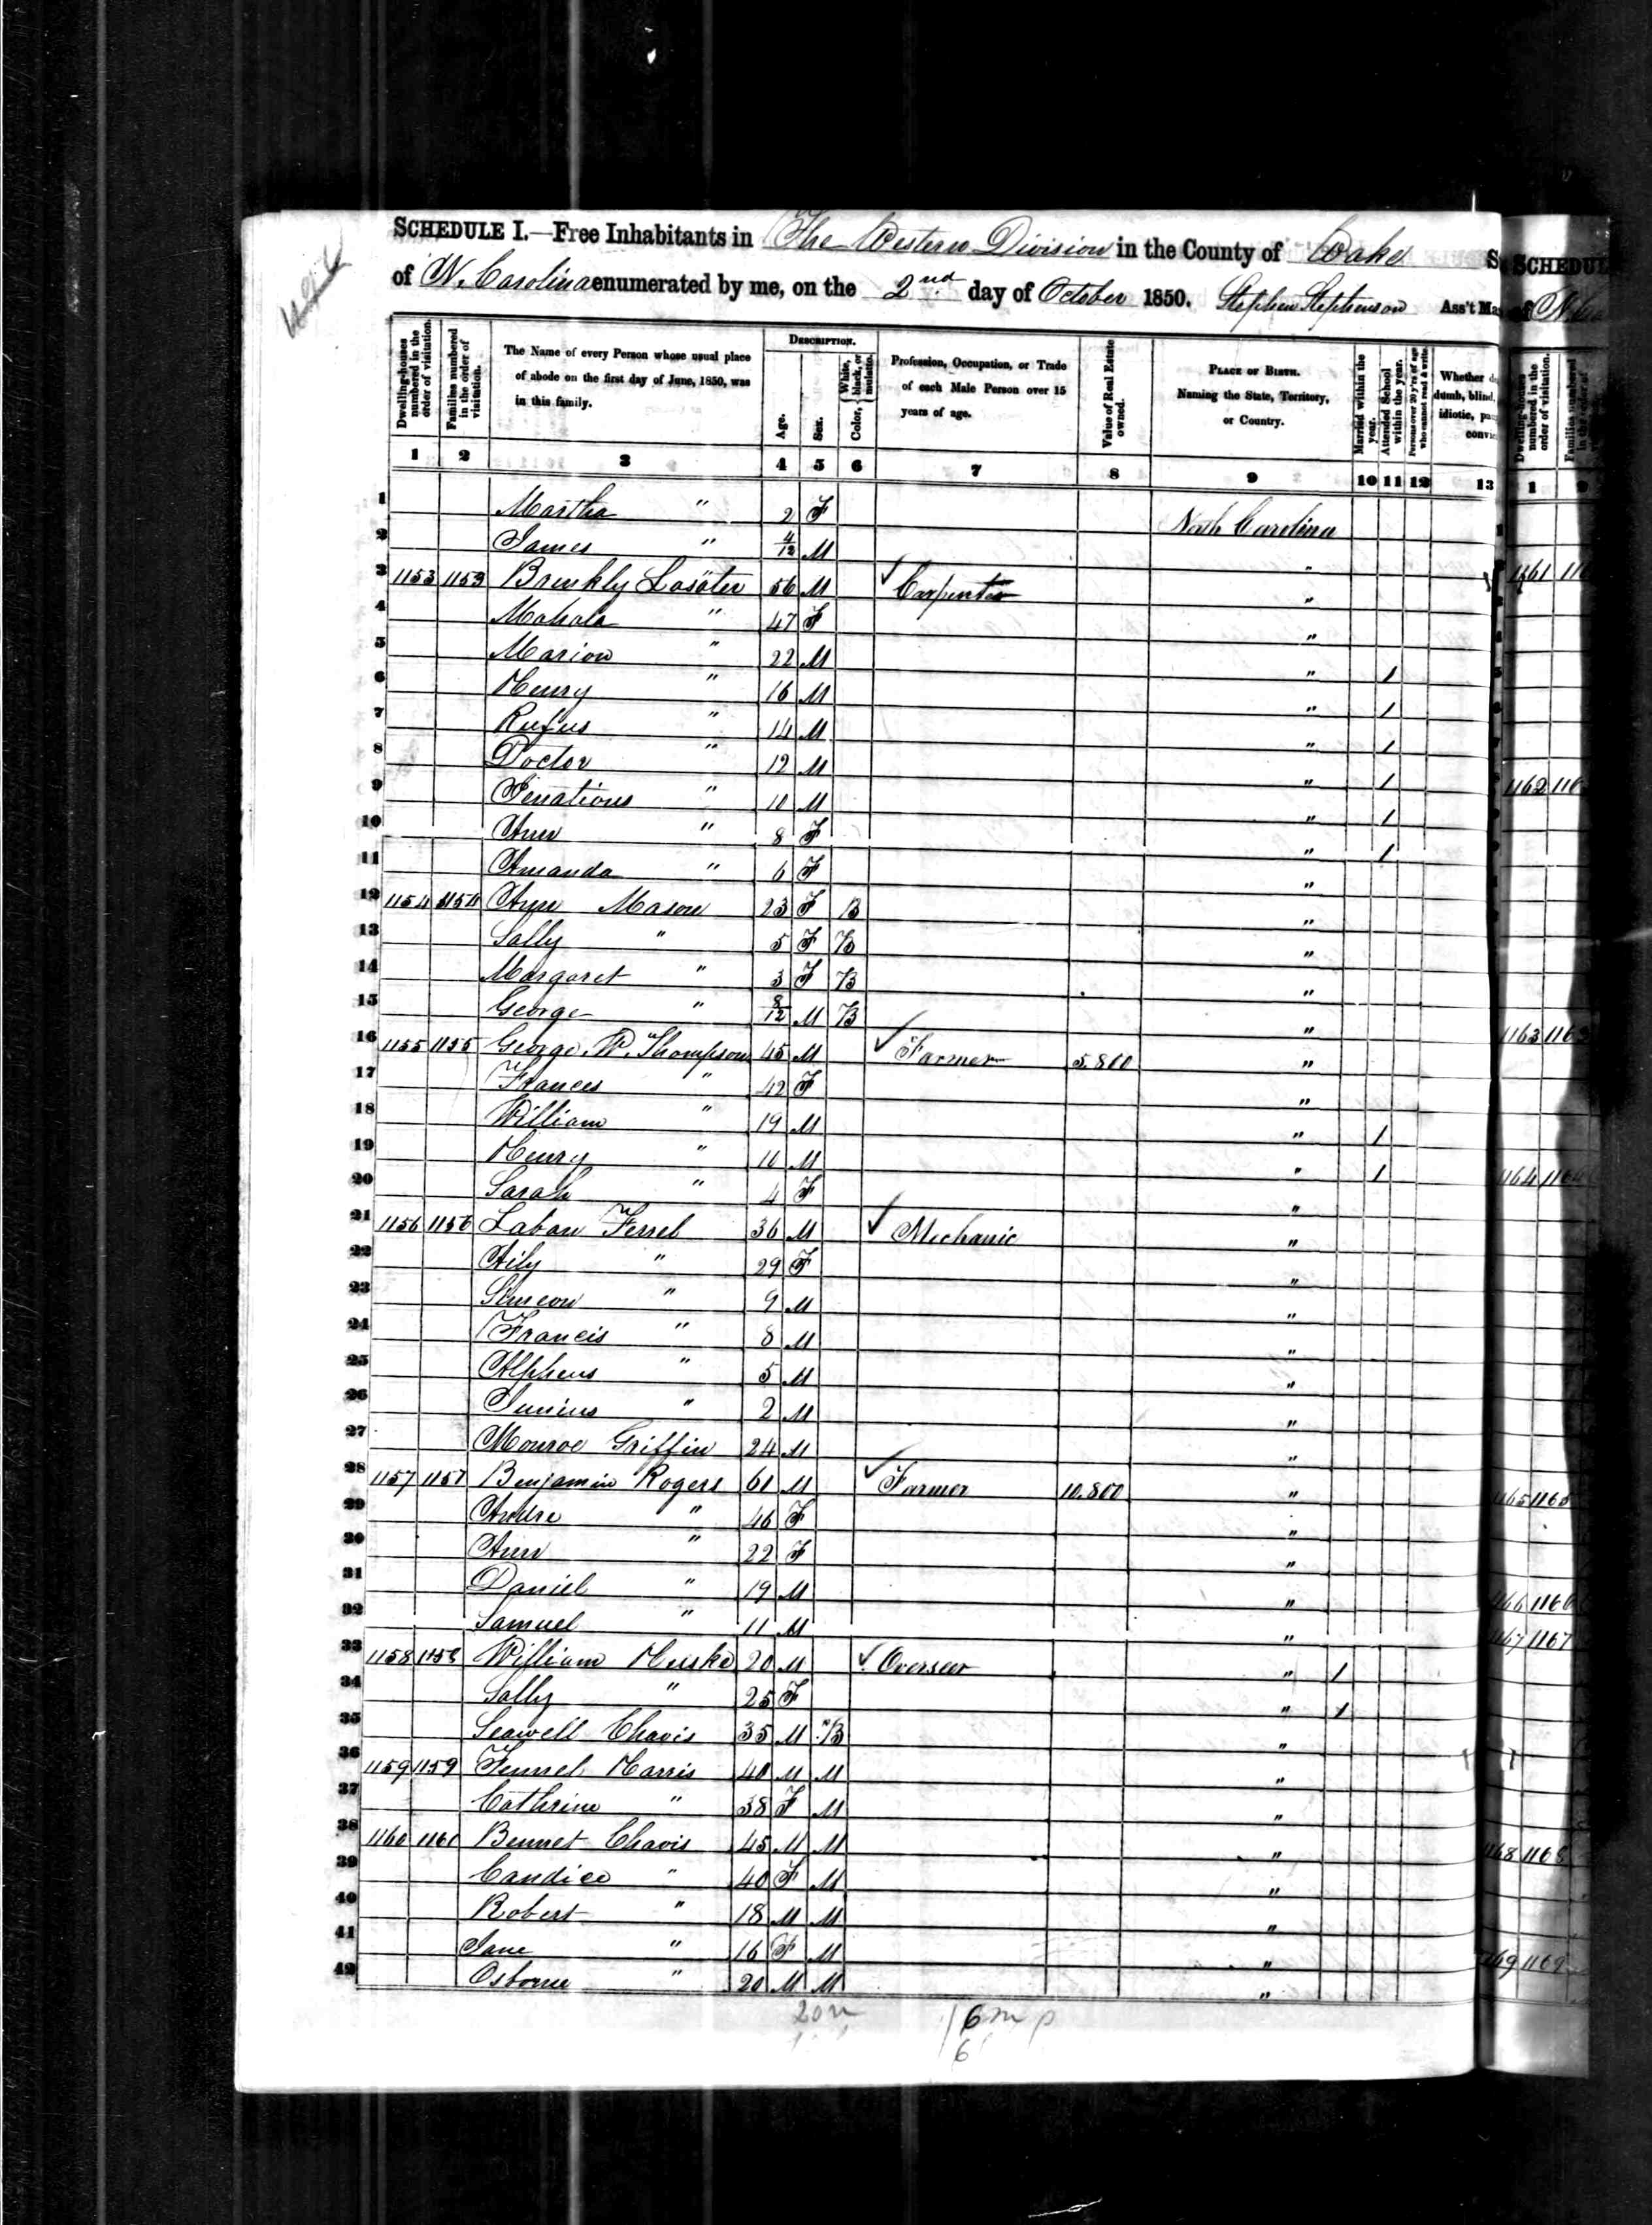 SCHEDULE I.—Free Inhabitants in The Western Division in the County of Wake S
of N. Carolina enumerated by me, on the 2nd day of October 1850. Stephen Stephenson Ass't Ma
Dwelling-houses numbered in the order of visitation. Families numbered in the order of visitation. The Name of every Person whose usual place of abode on the first day of June, 1850, was in this family. DESCRIPTION. Age. Sex. Color, { White, black, or mulatto. Profession, Occupation, or Trade of each Male Person over 15 years of age. Value of Real Estate owned. PLACE OF BIRTH. Naming the State, Territory, or Country. Married within the year. Attended School within the year. Persons over 20 y'rs of age who cannot read & write. Whether dumb, blind, idiotic,
1 2 3 4 5 6 7 8 9 10 11 12 13
1 Martha " 2 F North Carolina
2 James " 4/12 M "
3 1153 1153 Brinkly Lasater 56 M Carpenter "
4 Mahala " 47 F "
5 Marion " 22 M " 1
6 Henry " 16 M " 1
7 Rufus " 14 M " 1
8 Doctor " 12 M " 1
9 " 10 M " 1
10 Ann " 8 F " 1
11 Amanda " 6 F "
12 1154 1154 Ann Mason 23 F B "
13 Sally " 5 F B "
14 Margaret " 3 F B "
15 George " 8/12 M B "
16 1155 1155 George W. Thompson 45 M Farmer 5.800 "
17 Frances " 42 F "
18 William " 19 M " 1
19 Henry " M " 1
20 Sarah " 4 F "
21 1156 1156 Laban Ferrel 36 M Mechanic "
22 Aily " 29 F "
23 Simeon " 9 M "
24 Francis " 8 M "
25 Alpheus " 5 M "
26 Junius " 2 M "
27 Monroe Griffin 24 M "
28 1157 1157 Benjamin Rogers 61 M Farmer 10.800 "
29 " 46 F "
30 Ann " 22 F "
31 Daniel " 19 M "
32 Samuel " 11 M "
33 1158 1158 William 20 M Overseer " 1
34 Sally " 25 F " 1
35 Seawell Chavis 35 M B "
36 1159 1159 Harris 40 M M "
37 Cathrine " 38 F M "
38 1160 1160 Bennet Chavis 45 M M "
39 Candice " 40 F M "
40 Robert " 18 M M "
41 Jane " 16 F M "
42 Osborne " 20 M M "
6
SCHEDUL
Dwelling-houses numbered in the order of visitation.
1
1161
1162
1163
1164
1165
1166
1167 1167
1168
1169